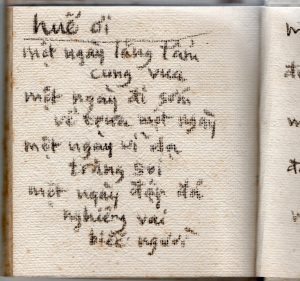 huế ơi
một ngày lăng tẩm
cung vua
một ngày đi sớm
về trưa một ngày
một ngày vĩ dạ
trăng soi
một ngày đập đá
nghiêng vai
biếc người
m
đ
m
đ